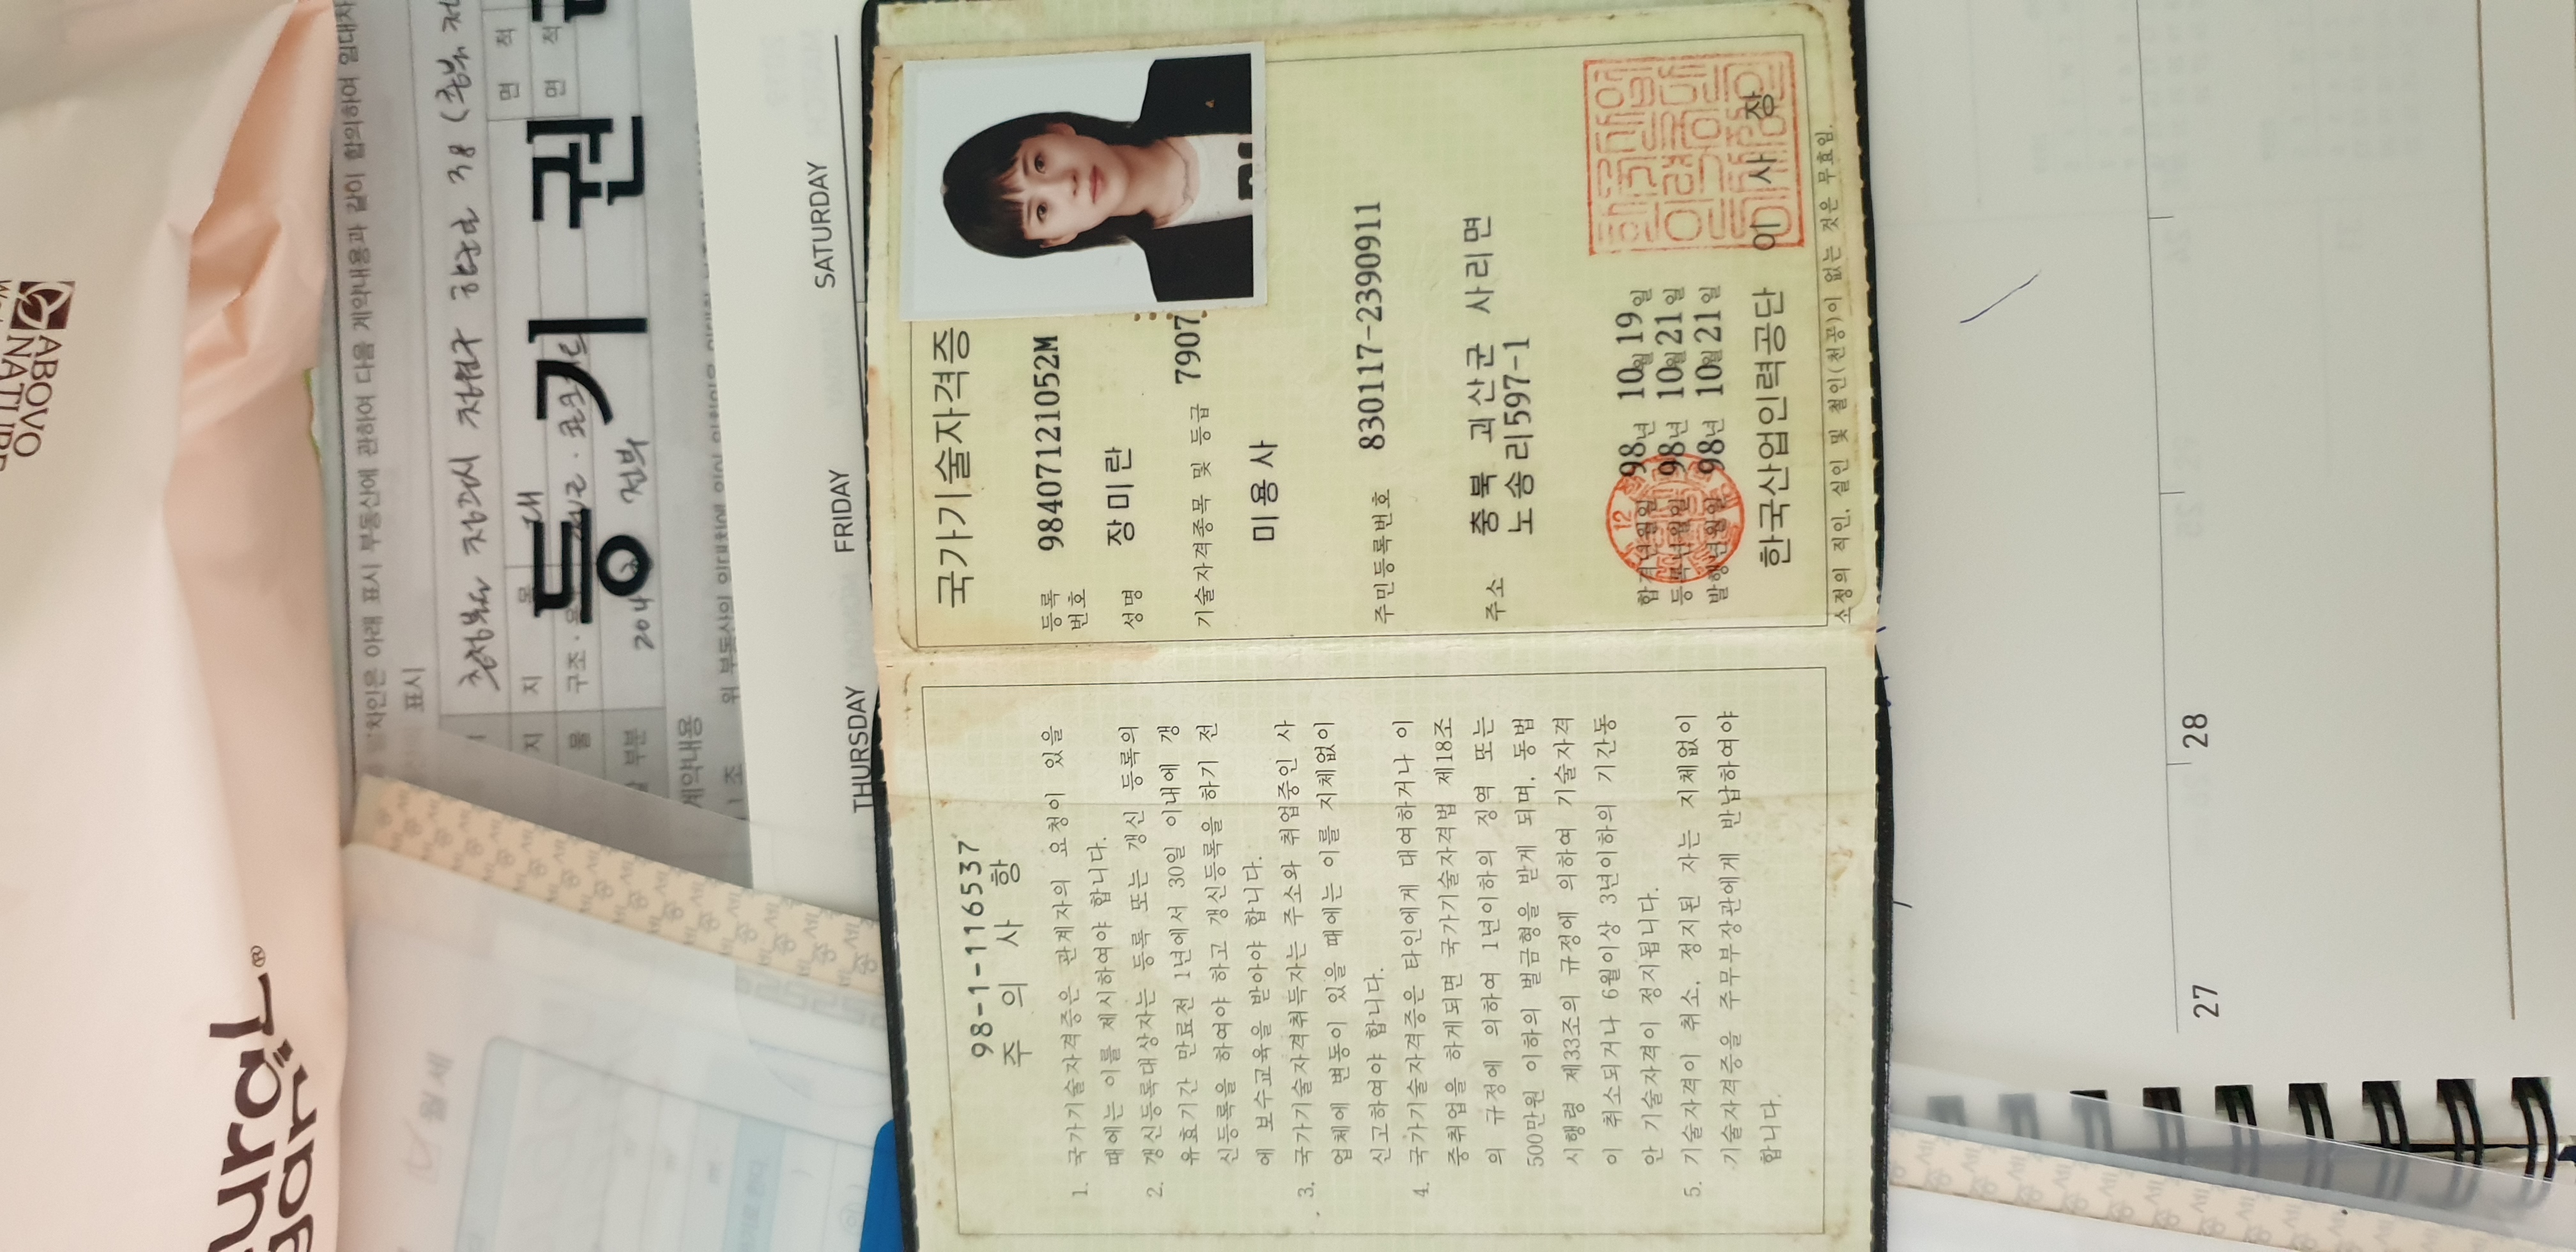 국가기술자격증
등록번호 98407121052M
성명 장미란
기술자격종목 및 등급 7907
미용사
주민등록번호 830117-2390911
주소 충북 괴산군 사리면
노송리597-1
합격년월일 98년 10월 19일
등록년월일 98년 10월 21일
발행년월일 98년 10월 21일
한국산업인력공단 이 사 장
소정의 직인, 실인 및 철인(천공)이 없는 것은 무효임.
98-1-116537
주 의 사 항
1. 국가기술자격증은 관계자의 요청이 있을
때에는 이를 제시하여야 합니다.
2. 갱신등록대상자는 등록 또는 갱신 등록의
유효기간 만료전 1년에서 30일 이내에 갱
신등록을 하여야 하고 갱신등록을 하기 전
에 보수교육을 받아야 합니다.
3. 국가기술자격취득자는 주소와 취업중인 사
업체에 변동이 있을 때에는 이를 지체없이
신고하여야 합니다.
4. 국가기술자격증은 타인에게 대여하거나 이
중취업을 하게되면 국가기술자격법 제18조
의 규정에 의하여 1년이하의 징역 또는
500만원 이하의 벌금형을 받게 되며, 동법
시행령 제33조의 규정에 의하여 기술자격
이 취소되거나 6월이상 3년이하의 기간동
안 기술자격이 정지됩니다.
5. 기술자격이 취소, 정지된 자는 지체없이
기술자격증을 주무부장관에게 반납하여야
합니다.
THURSDAY
FRIDAY
SATURDAY
27
28
차인은 아래 표시 부동산에 관하여 다음 계약내용과 같이 합의하여 임대차
표시
면 적
면 적
등 기 권
계약내용
월세
ABOVO